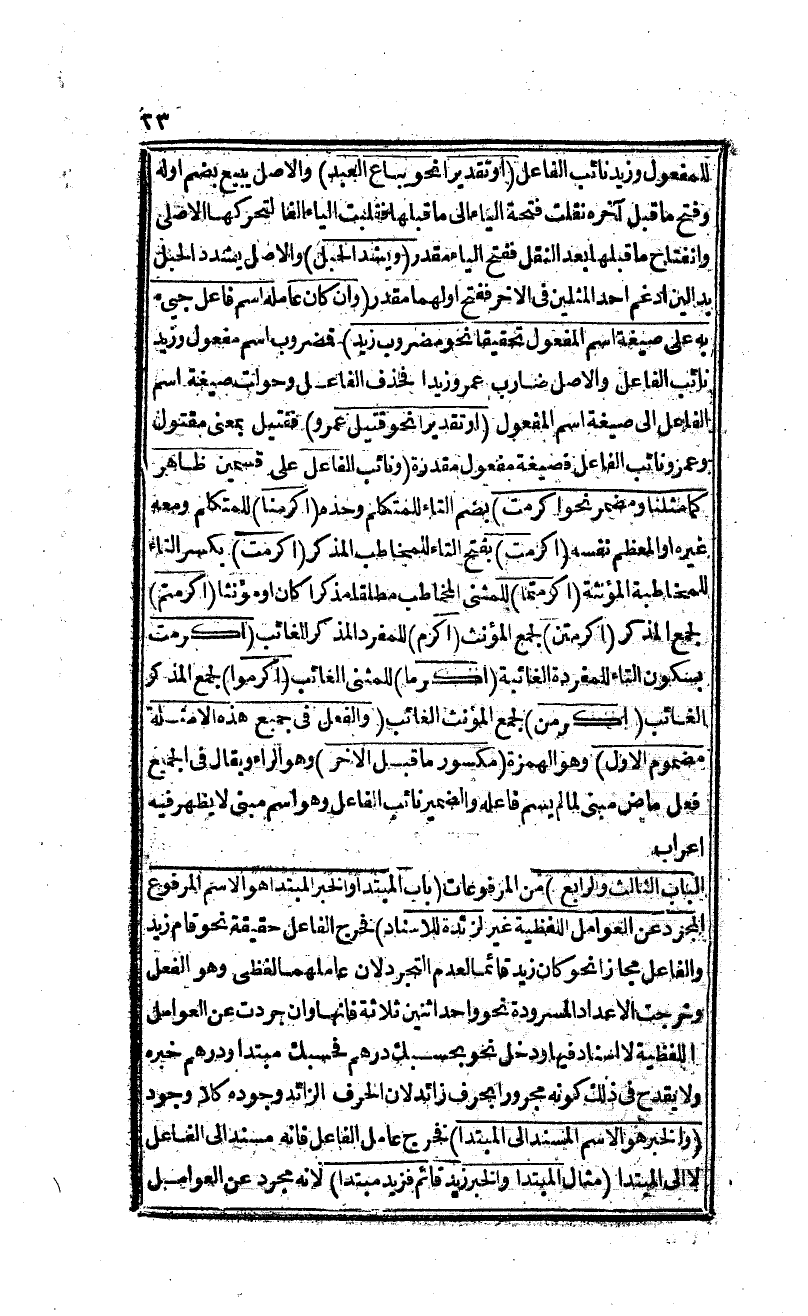 ٢٣
للمفعول وزيد نائب الفاعل (أو تقديرا نحو يباع العبد) والاصل يبيع بضم اوله
وفتح ما قبل آخره نقلت فتحة الياء الى ما قبلها فقلبت الياء الفا لتحركها الاصلى
وانفتاح ما قبلها بعد النقل ففتح الياء مقدر (ويشد الحبل) والاصل يشدد الحبل
بدالين ادغم احد المثلين فى الاخر ففتح اولهما مقدر (وان كان عامله اسم فاعل جيء
به على صيغة اسم المفعول تحقيقا نحو مضروب زيد) فمضروب اسم مفعول وزيد
نائب الفاعل والاصل ضارب عمرو زيدا فحذف الفاعل وحولت صيغة اسم
الفاعل الى صيغة اسم المفعول (او تقديرا نحو قتيل عمرو) فقتيل بمعنى مقتول
وعمرو نائب الفاعل فصيغة مفعول مقدرة (ونائب الفاعل على قسمين ظاهر
كما مثلنا ومضمر نحو اكرمت) بضم التاء للمتكلم وحده (اكرمنا) للمتكلم ومعه
غيره او المعظم نفسه (اكرمت) بفتح التاء للمخاطب المذكر (اكرمت) بكسر التاء
للمخاطبة المؤنثة (اكرمتما) للمثنى المخاطب مطلقا مذكرا كان او مؤنثا (اكرمتم)
لجمع المذكر (اكرمتن) لجمع المؤنث (اكرم) للمفرد المذكر الغائب (اكرمت
بسكون التاء للمفردة الغائبة (اكرما) للمثنى الغائب (اكرموا) لجمع المذكر
الغائب (اكرمن) لجمع المؤنث الغائب (والفعل فى جميع هذه الامثلة
مضموم الاول) وهو الهمزة (مكسور ما قبل الاخر) وهو الراء ويقال فى الجميع
فعل ماض مبنى لما لم يسم فاعله والضمير نائب الفاعل وهو اسم مبنى لا يظهر فيه
اعراب
الباب الثالث والرابع) من المرفوعات (باب المبتدا والخبر المبتدا هو الاسم المرفوع
المجرد عن العوامل اللفظية غير الزائدة للاسناد) فخرج الفاعل حقيقة نحو قام زيد
والفاعل مجازا نحو كان زيد قائما لعدم التجرد لان عاملهما لفظى وهو الفعل
وخرجت الاعداد المسرودة نحو واحد اثنين ثلاثة فانها وان جردت عن العوامل
اللفظية لا اسناد فيها ودخل نحو بحسبك درهم فحسبك مبتدا ودرهم خبره
ولا يقدح فى ذلك كونه مجرورا بحرف زائد لان الحرف الزائد وجوده كلا وجود
(والخبر هو الاسم المسند الى المبتدا) فخرج عامل الفاعل فانه مسند الى الفاعل
لا الى المبتدا (مثال المبتدا والخبر زيد قائم فزيد مبتدا) لانه مجرد عن العوامل